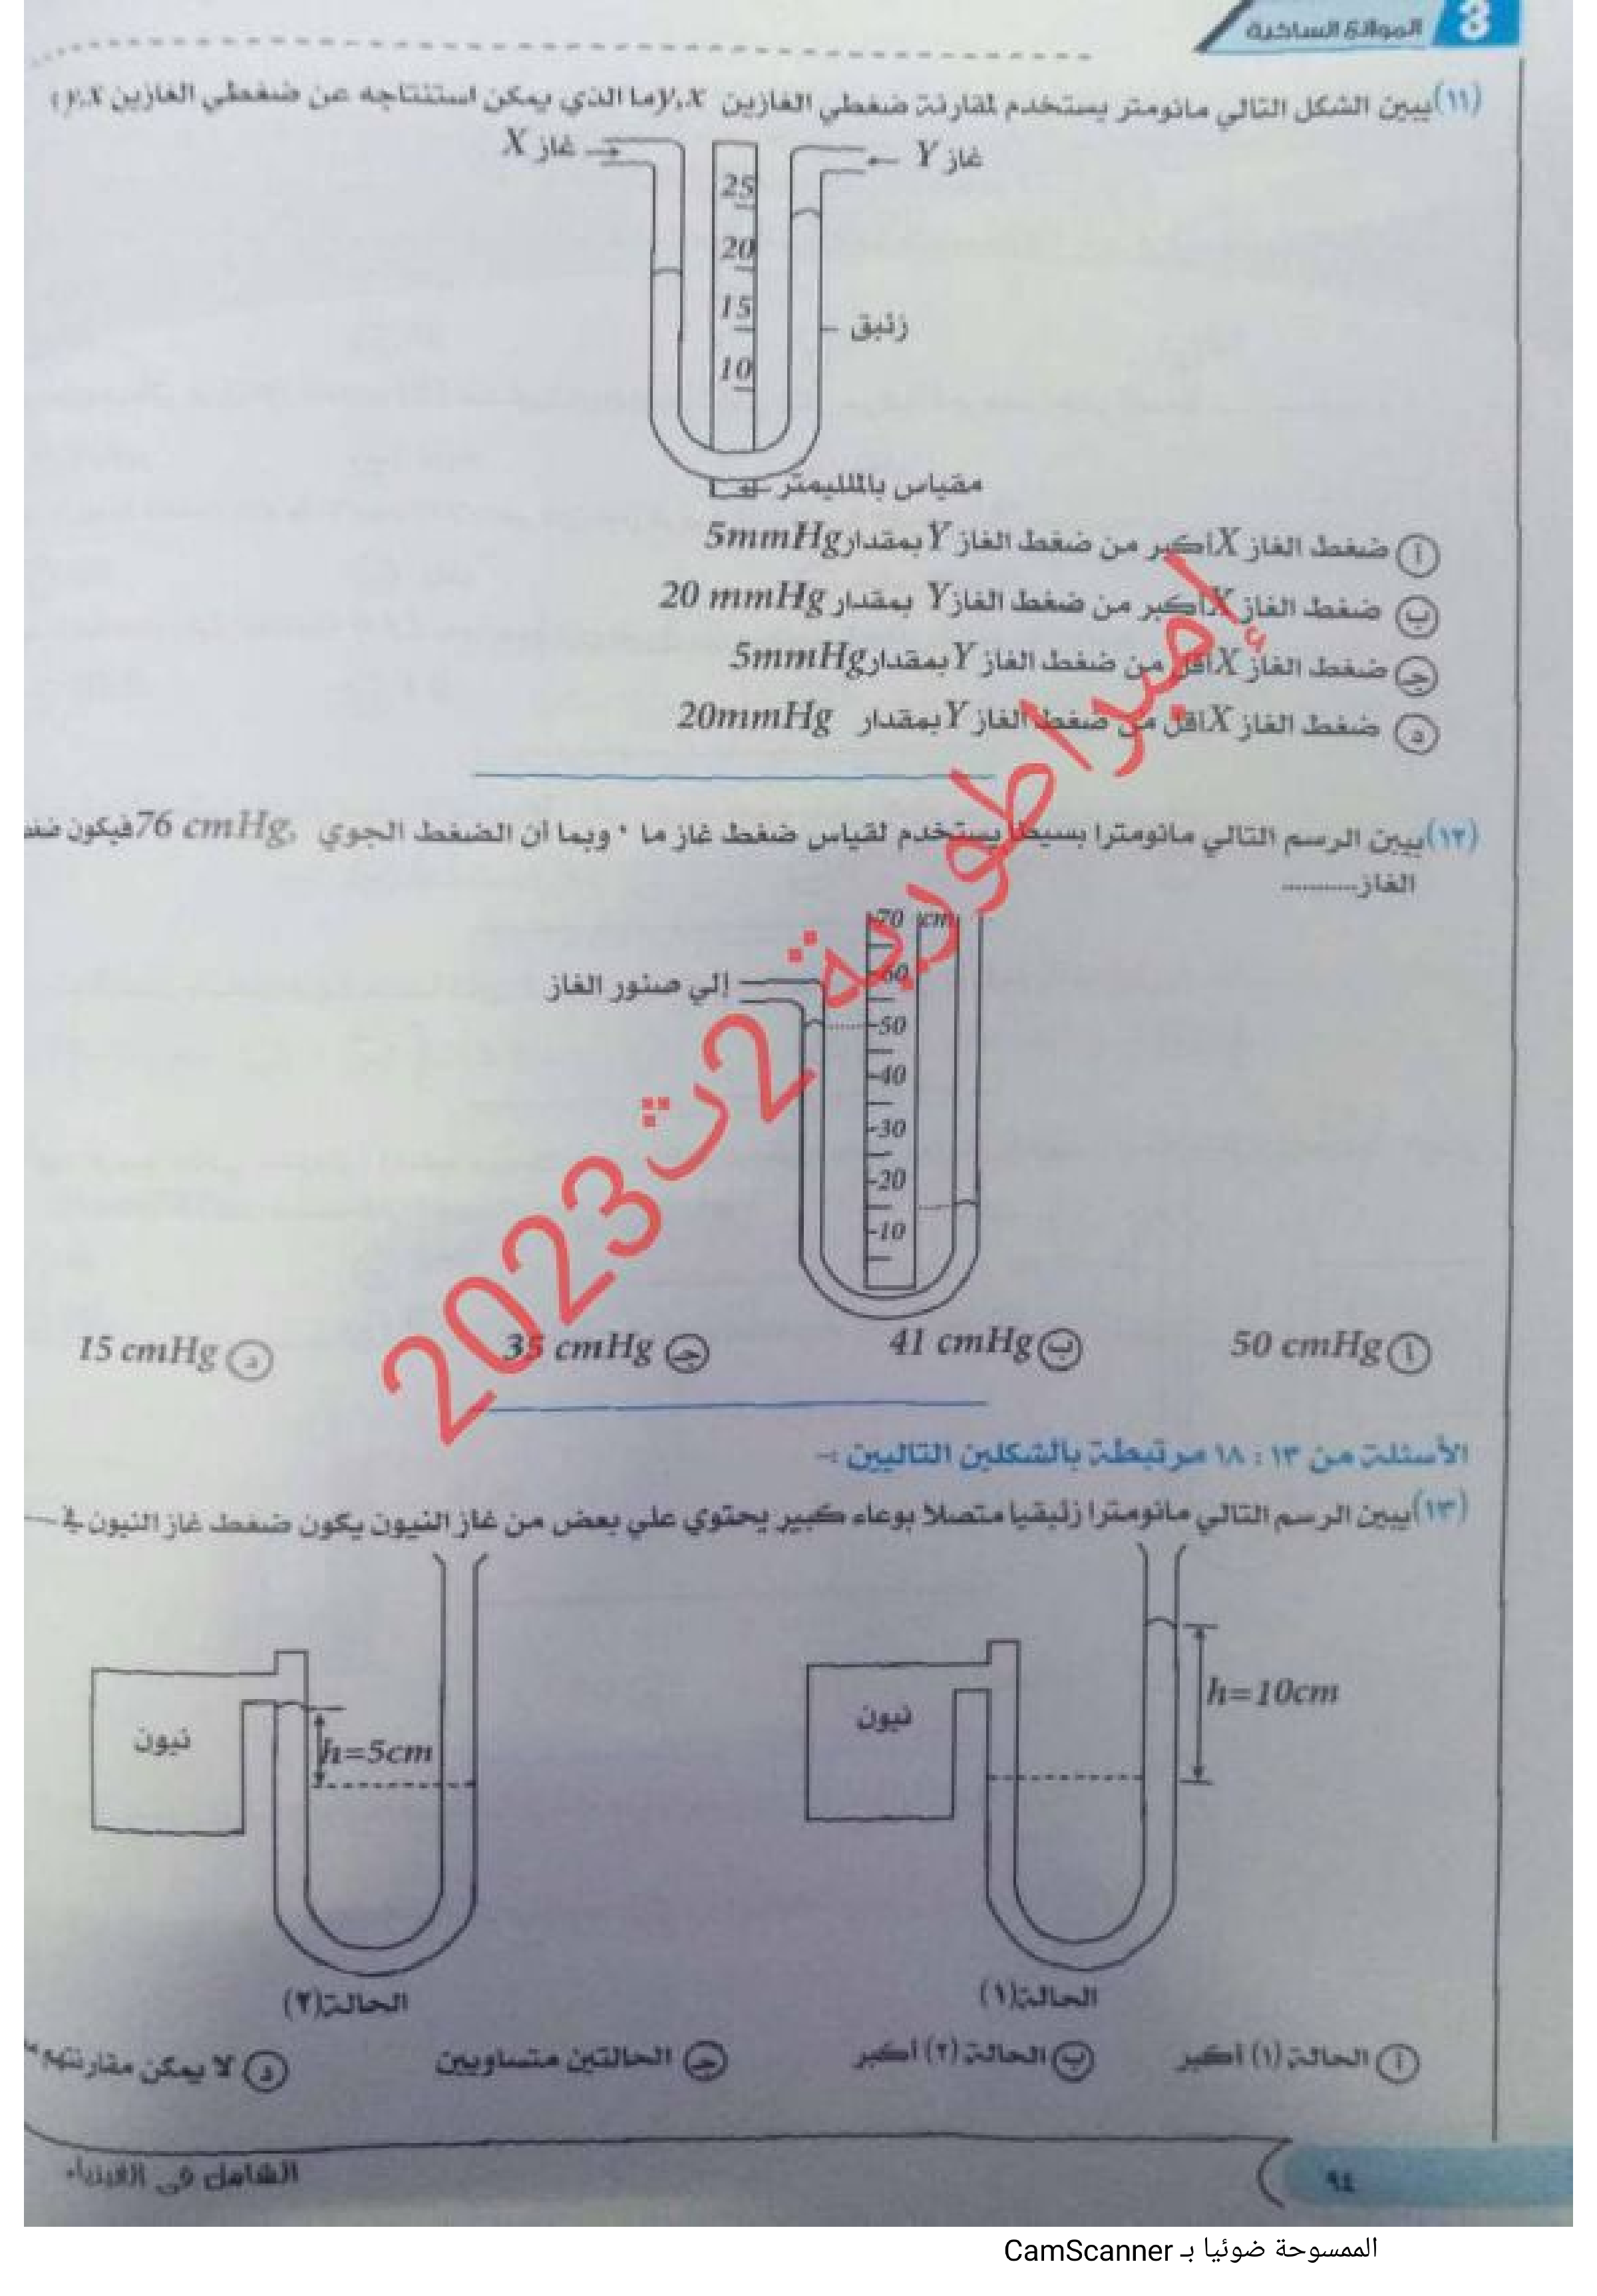 3 الموائع الساكنة
(١١) يبين الشكل التالي مانومتر يستخدم لمقارنة ضغطي الغازين y,x ما الذي يمكن استنتاجه عن ضغطي الغازين y,x؟
غاز X
غاز Y
25
20
15
10
زئبق
مقياس بالملليمتر
أ ضغط الغاز X أكبر من ضغط الغاز Y بمقدار 5mmHg
ب ضغط الغاز X أكبر من ضغط الغاز Y بمقدار 20 mmHg
جـ ضغط الغاز X أقل من ضغط الغاز Y بمقدار 5mmHg
د ضغط الغاز X أقل من ضغط الغاز Y بمقدار 20mmHg
(١٢) يبين الرسم التالي مانومترا بسيطا يستخدم لقياس ضغط غاز ما ، وبما أن الضغط الجوي 76 cmHg, فيكون ضغط
الغاز............
70 cm
60
إلي صنبور الغاز
50
40
30
20
10
أ 50 cmHg ب 41 cmHg جـ 35 cmHg د 15 cmHg
إمبراطورية 2ث 2023
الأسئلة من ١٣ : ١٨ مرتبطة بالشكلين التاليين :-
(١٣) يبين الرسم التالي مانومترا زئبقيا متصلا بوعاء كبير يحتوي علي بعض من غاز النيون يكون ضغط غاز النيون في
نيون
h=10cm
نيون
h=5cm
الحالة (١)
الحالة (٢)
أ الحالة (١) أكبر ب الحالة (٢) أكبر جـ الحالتين متساويين د لا يمكن مقارنتهم
٩٤
الشامل في الفيزياء
الممسوحة ضوئيا بـ CamScanner